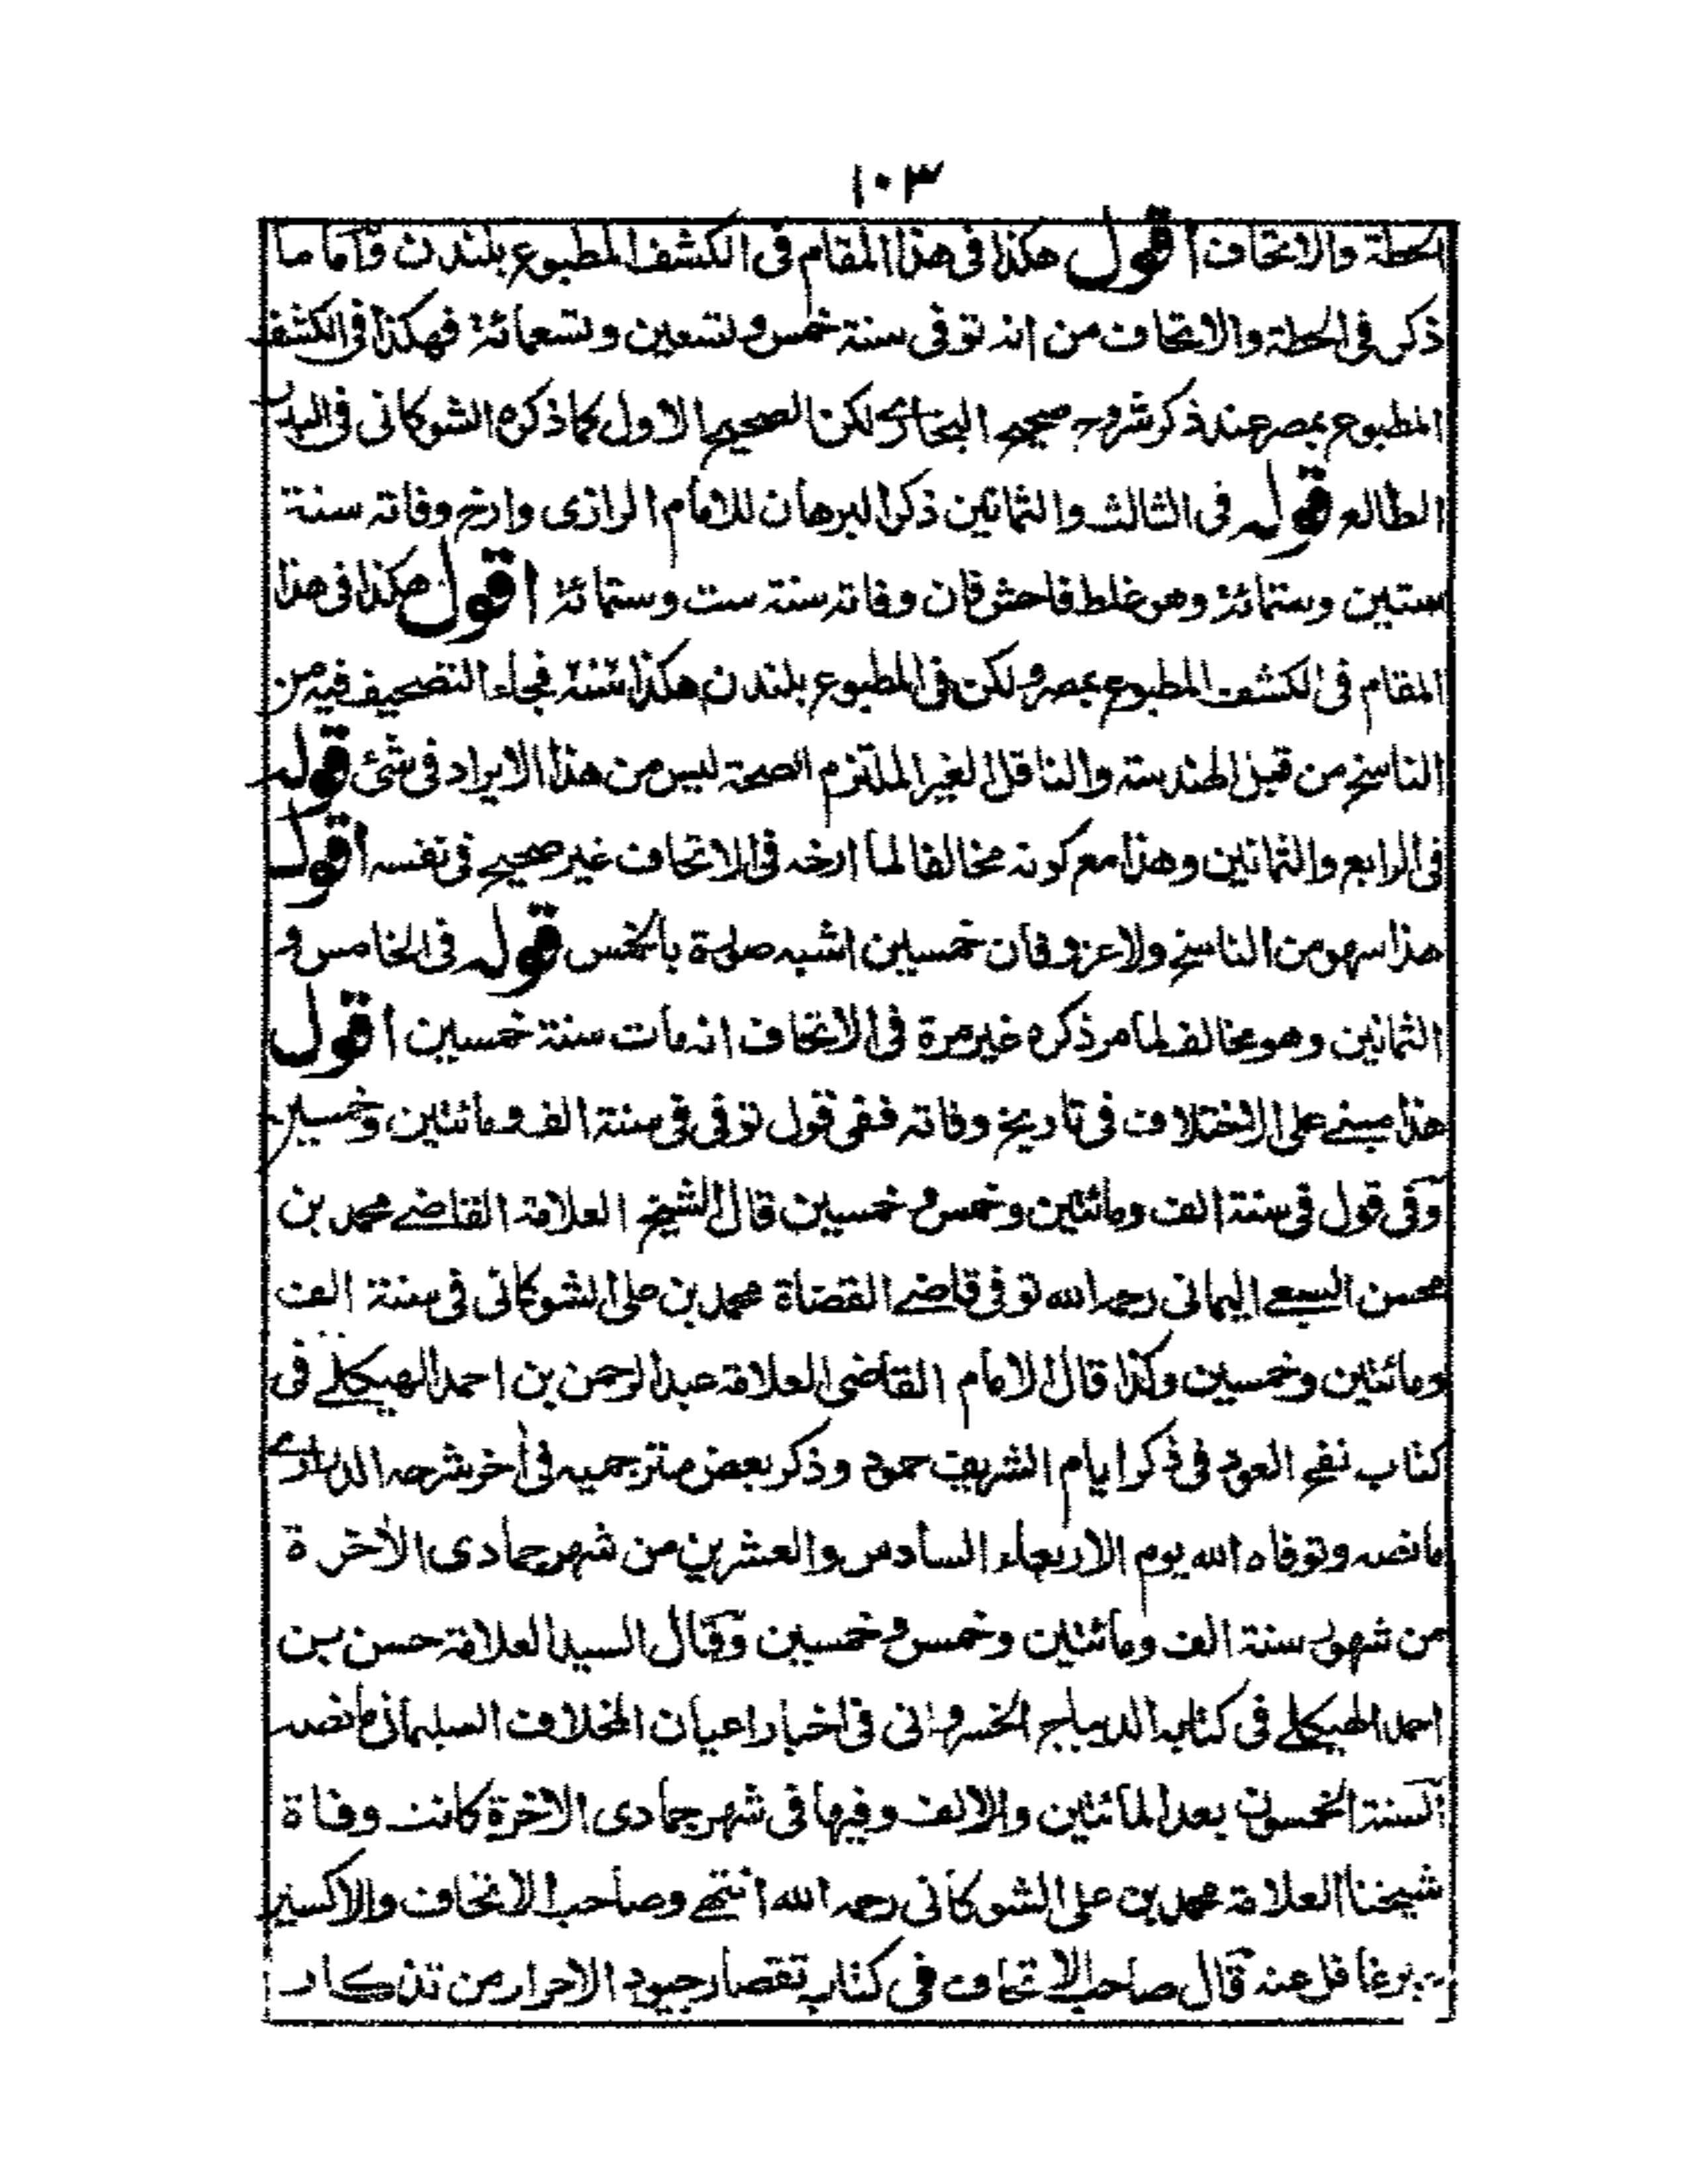 ١٠٣
الحطة والاتحاف اقول هكذا فى هذا المقام فى الكشف المطبوع بلندن واما ما
ذكر فى الحطة والاتحاف من انه توفى سنة خمس وتسعين وتسعمائة فهكذا فى الكشف
المطبوع بمصر عند ذكر شروح صحيح البخارى لكن الصحيح الاول كما ذكره الشوكانى فى البدر
الطالع قوله فى الثالث والثمانين ذكر البرهان للامام الرازى وارخ وفاته سنة
ستين وستمائة وهو غلط فاحش فان وفاته سنة ست وستمائة اقول هكذا فى هذا
المقام فى الكشف المطبوع بمصر ولكن فى المطبوع بلندن هكذا سنة فجاء التصحيف فيه من
الناسخ من قبل الهندسة والناقل الغير الملتزم الصحة ليس من هذا الايراد فى شئ قوله
فى الرابع والثمانين وهذا مع كونه مخالفا لما ارخه فى الاتحاف غير صحيح فى نفسه اقول
هذا سهو من الناسخ ولا عزو فان خمسين اشبه صلوة بالخمس قوله فى الخامس و
الثمانين وهو مخالف لما مر ذكره غير مرة فى الاتحاف انه مات سنة خمسين اقول
هذا مبنے على الاختلاف فى تاريخ وفاته ففى قول توفى فى سنة الف ومائتين وخمسين
وفى قول فى سنة الف ومائتين وخمس وخمسين قال الشيخ العلامة القاضے محمد بن
محسن السبعے اليمانى رحمه الله توفى قاضے القضاة محمد بن على الشوكانى فى سنة الف
ومائتين وخمسين وكذا قال الامام القاضى العلامة عبد الرحمن بن احمد البهيكلے فى
كتاب نفح العود فى ذكر ايام الشريف حمود وذكر بعض مترجميه فى اخر شرحه الدرارے
ما نصه وتوفاه الله يوم الاربعاء السادس والعشرين من شهر جمادى الاخرة
من شهور سنة الف ومائتين وخمس وخمسين وقال السيد العلامة حسن بن
احمد البهيكلے فى كتابه الديباج الخسروانى فى اخبار اعيان المخلاف السليمانى ما نصه
السنة الخمسون بعد المائتين والالف وفيها فى شهر جمادى الاخرة كانت وفاة
شيخنا العلامة محمد بن على الشوكانى رحمه الله انتهے وصاحب الاتحاف والاكسير
غافل عنه قال صاحب الاتحاف فى كتابه تقصار جيود الاحرار من تذكار